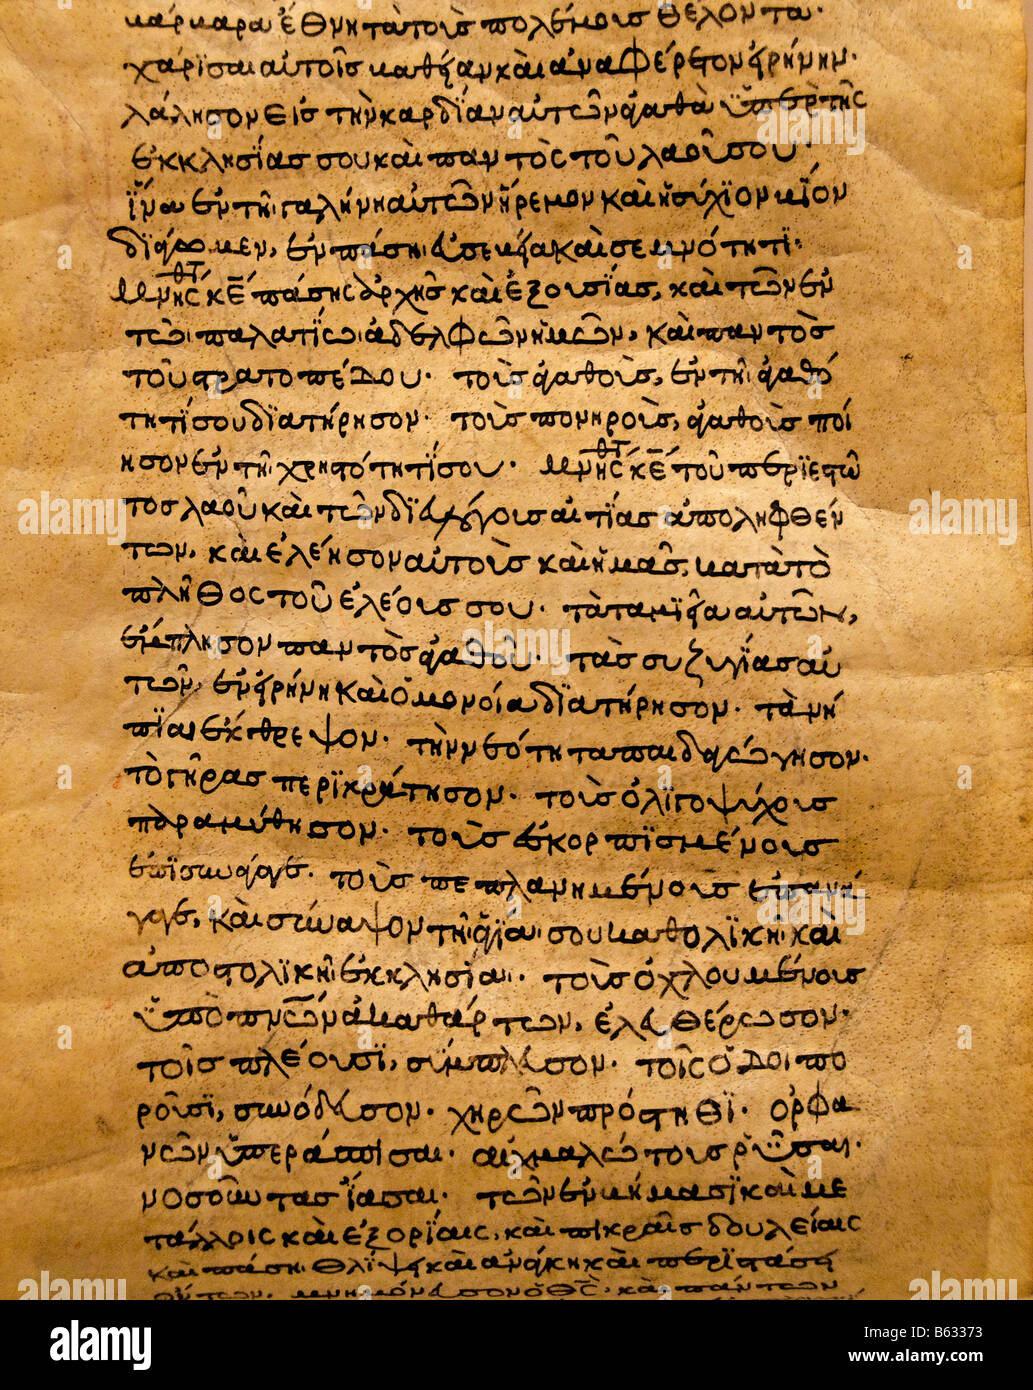 βάρβαρα ἔθνη τὰ τοὺς πολέμους θέλοντα·
χάρϊσαι αὐτοῖς βαθεῖαν καὶ ἀναφέρετον εἰρήνην·
λάλησον εἰς τὴν καρδΐαν αὐτῶν ἀγαθὰ ὑπὲρ τῆς
ἐκκλησΐας σου καὶ παντὸς τοῦ λαοῦ σου·
ἵνα ἐν τῆ γαλήνη αὐτῶν ἤρεμον καὶ ἡσύχϊον βΐον
δϊάγωμεν, ἐν πάση εὐσεβεία καὶ σεμνότητϊ·
Μνήσθτ κε πάσης ἀρχῆς καὶ ἐξουσΐας, καὶ τῶν ἐν
τῶ παλατΐω ἀδελφῶν ἡμῶν, καὶ παντὸς
τοῦ στρατοπέδου· τοὺς ἀγαθοὺς, ἐν τῆ ἀγαθό
τητΐ σου δϊατήρησον· τοὺς πονηροὺς, ἀγαθοὺς ποί
ησον ἐν τῆ χρηστότητΐ σου· Μνήσθτ κε τοῦ περϊεστῶ
τος λαοῦ καὶ τῶν δϊ εὐλόγους αἰτΐας ἀπολειφθέν
των, καὶ ἐλέησον αὐτοὺς καὶ ἡμᾶς, κατὰ τὸ
πλῆθος τοῦ ἐλέους σου· τὰ ταμϊεῖα αὐτῶν,
ἔμπλησον παντὸς ἀγαθοῦ· τὰς συζυγΐας αὐ
τῶν, ἐν εἰρήνη καὶ ὁμονοία δϊατήρησον· τὰ νή
πϊα ἔκθρεψον· τὴν νεότητα παιδαγώγησον·
τὸ γῆρας περϊκράτησον· τοὺς ὀλϊγοψύχους
παραμύθησον· τοὺς ἐσκορπϊσμένους
ἐπϊσυνάγαγε· τοὺς πεπλανημένους ἐπανά
γαγε, καὶ σύναψον τῆ ἁγΐα σου καθολϊκῆ καὶ
ἀποστολϊκῆ ἐκκλησΐα· τοὺς ὀχλουμένους
ὑπὸ πνων ἀκαθάρτων, ἐλευθέρωσον·
τοῖς πλέουσϊ, σύμπλευσον· τοῖς ὁδοιπο
ροῦσϊ, συνόδευσον· χηρῶν πρόστηθϊ· ὀρφα
νῶν ὑπεράσπισαι· αἰχμαλώτους ῥῦσαι·
νοσοῦντας ἴασαι· τῶν ἐν βήμασϊ καὶ με
τάλλοις καὶ ἐξορΐαις, καὶ πικραῖς δουλείαις
καὶ πάση θλΐψει καὶ ἀνάγκη καὶ περϊστάσει
ὄντων, μνημόνευσον ὁ θς· καὶ πάντων
alamy
Image ID: B63373
www.alamy.com